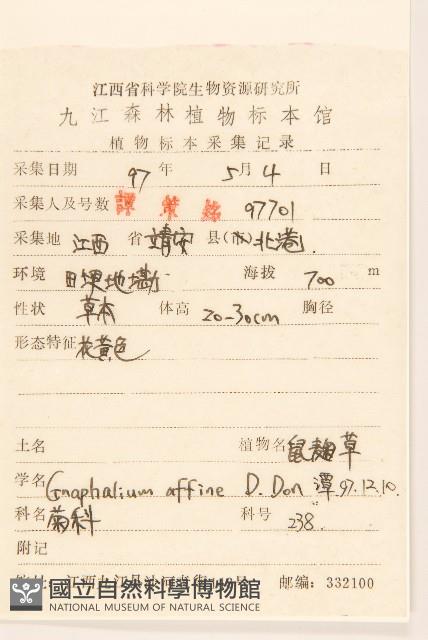 江西省科学院生物资源研究所
九江森林植物标本馆
植物标本采集记录
采集日期 97 年 5月 4 日
采集人及号数 譚策銘 97701
采集地 江西 省 靖安 县(市) 北港.
环境 田埂地塝 海拔 700 m
性状 草本 体高 20-30cm 胸径
形态特征 花黄色
土名 植物名 鼠麹草
学名 Gnaphalium affine D. Don 潭 97.12.10.
科名 菊科 科号 238.
附记
江西九江县沙河 邮编: 332100
國立自然科學博物館
NATIONAL MUSEUM OF NATURAL SCIENCE